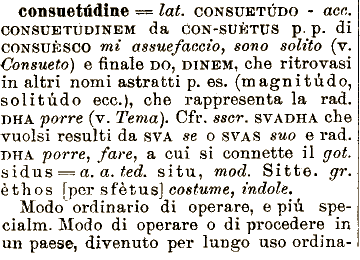 consuetúdine = lat. CONSUETÚDO - acc.
CONSUETÚDINEM da CON-SUÈTUS p. p. di
CONSUÈSCO mi assuefaccio, sono solito (v.
Consueto) e finale DO, DINEM, che ritrovasi
in altri nomi astratti p. es. (magnitúdo,
solitúdo ecc.), che rappresenta la rad.
DHA porre (v. Tema). Cfr. sscr. SVADHA che
vuolsi resulti da SVA se o SVAS suo e rad.
DHA porre, fare, a cui si connette il got.
sidus = a. a. ted. situ, mod. Sitte. gr.
èthos [per sfètus] costume, indole.
Modo ordinario di operare, e piú spe-
cialm. Modo di operare o di procedere in
un paese, divenuto per lungo uso ordina-